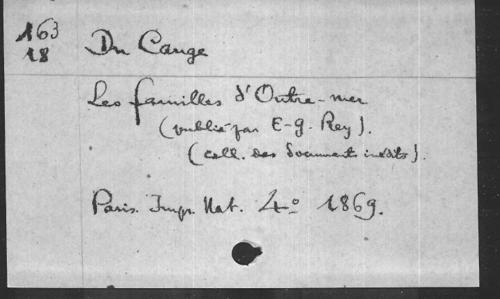 163
18
Du Cange
Les familles d'Outre-mer
(publié par E-g. Rey).
(coll. des Documents inédits).
Paris. Impr. Nat. 4° 1869.